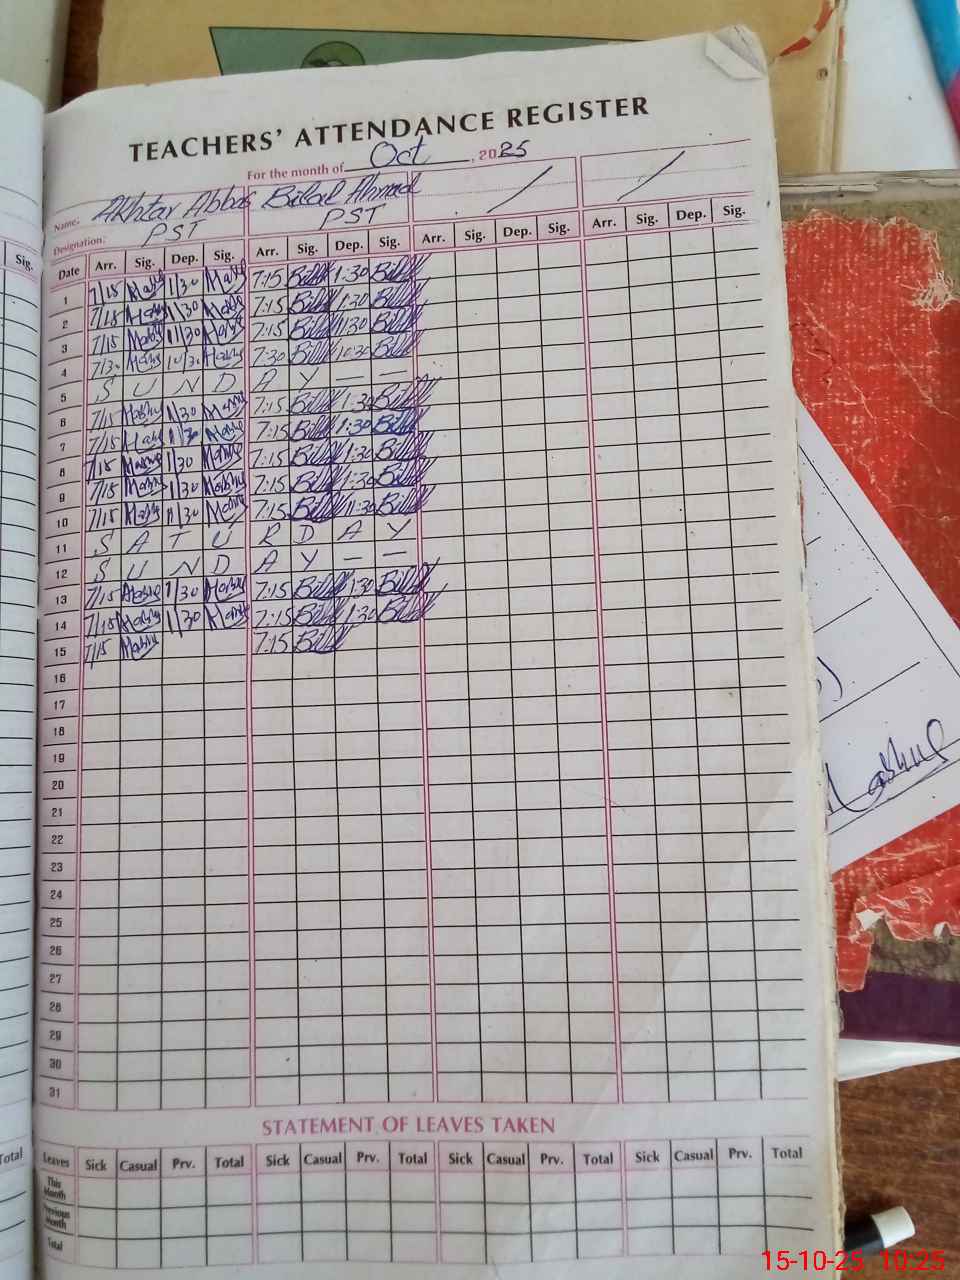 TEACHERS' ATTENDANCE REGISTER
For the month of Oct, 2025
Name. Akhtar Abbas Bilal Ahmad / /
Designation: PST PST
Date Arr. Sig. Dep. Sig. Arr. Sig. Dep. Sig. Arr. Sig. Dep. Sig. Arr. Sig. Dep. Sig.
1 7/15 1/30 7:15 Bilal 1:30 Bilal
2 7/15 1/30 7:15 Bilal 1:30 Bilal
3 7/15 11/30 7:15 Bilal 11:30 Bilal
4 7/30 10/30 7:30 Bilal 10:30 Bilal
5 S U N D A Y — —
6 7/15 1/30 7:15 Bilal 1:30 Bilal
7 7/15 1/30 7:15 Bilal 1:30 Bilal
8 7/15 1/30 7:15 Bilal 1:30 Bilal
9 7/15 1/30 7:15 Bilal 1:30 Bilal
10 7/15 11/30 7:15 Bilal 11:30 Bilal
11 S A T U R D A Y
12 S U N D A Y — —
13 7/15 1/30 7:15 Bilal 1:30 Bilal
14 7/15 1/30 7:15 Bilal 1:30 Bilal
15 7/15 7:15 Bilal
16
17
18
19
20
21
22
23
24
25
26
27
28
29
30
31
STATEMENT OF LEAVES TAKEN
Leaves Sick Casual Prv. Total Sick Casual Prv. Total Sick Casual Prv. Total Sick Casual Prv. Total
This Month
Previous Month
Total
Sig.
Total
15-10-25 10:25